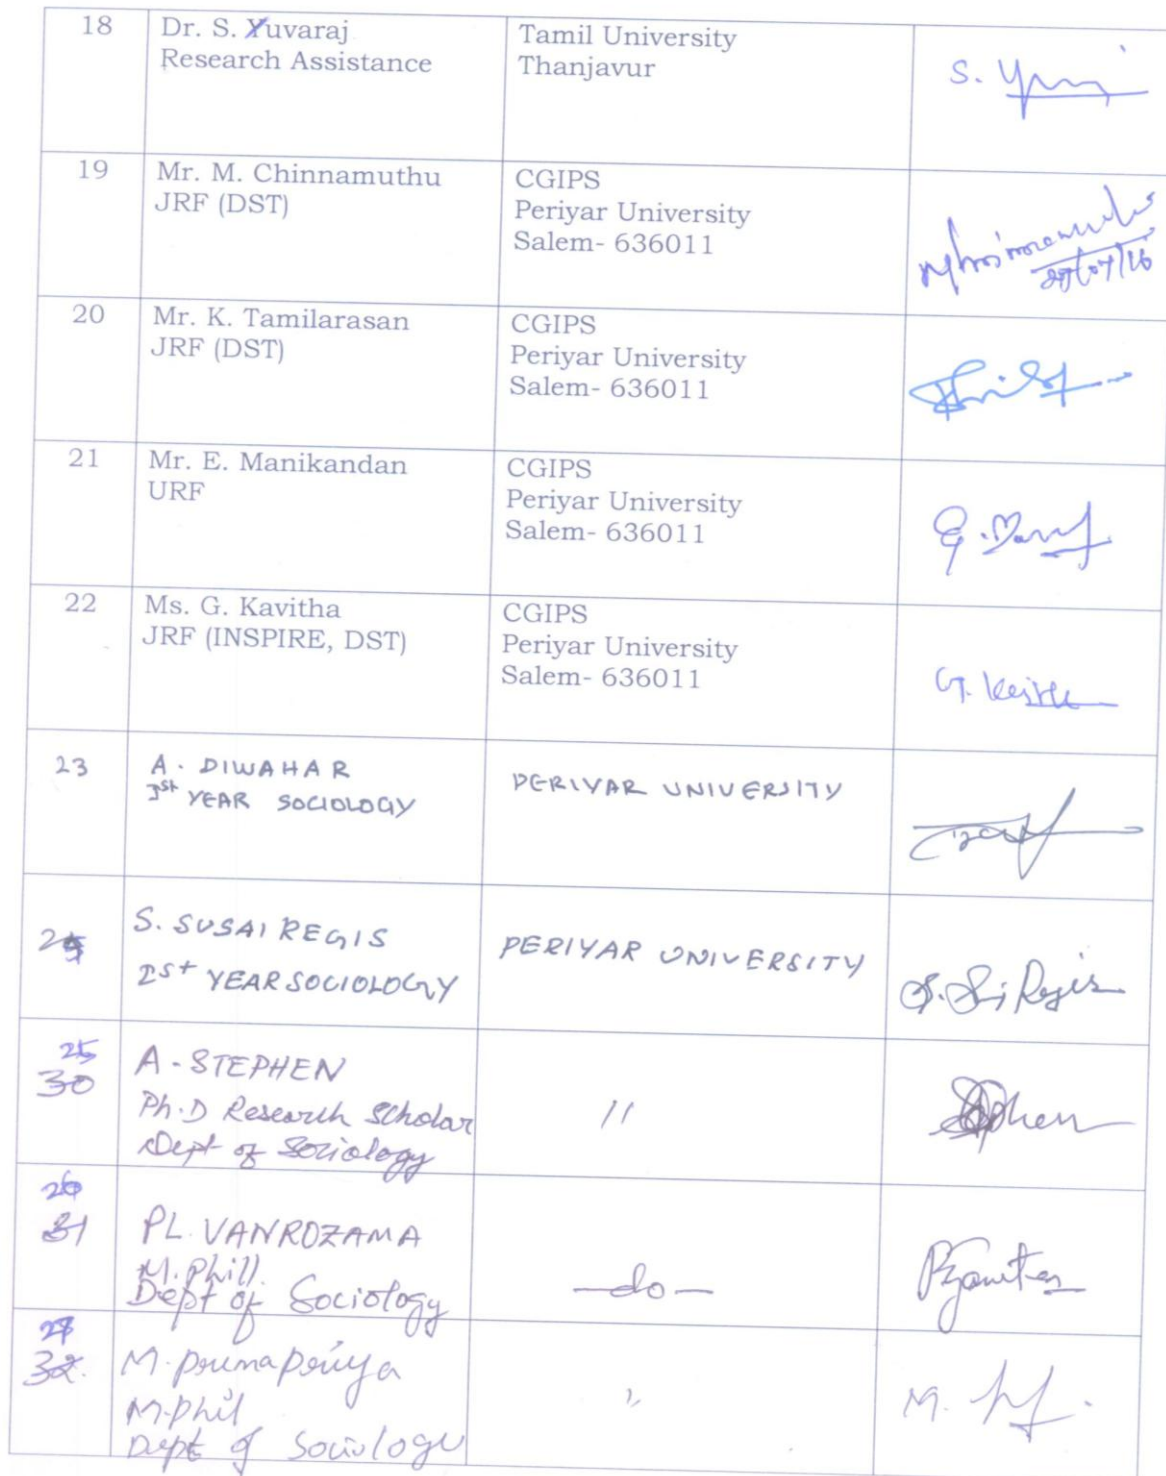 18
Dr. S. Yuvaraj
Research Assistance
Tamil University
Thanjavur
S.
19
Mr. M. Chinnamuthu
JRF (DST)
CGIPS
Periyar University
Salem- 636011
20
Mr. K. Tamilarasan
JRF (DST)
CGIPS
Periyar University
Salem- 636011
21
Mr. E. Manikandan
URF
CGIPS
Periyar University
Salem- 636011
22
Ms. G. Kavitha
JRF (INSPIRE, DST)
CGIPS
Periyar University
Salem- 636011
G.
23
A. DIWAHAR
Ist YEAR SOCIOLOGY
PERIYAR UNIVERSITY
24
S. SUSAI REGIS
Ist YEAR SOCIOLOGY
PERIYAR UNIVERSITY
Regis
25
30
A. STEPHEN
Ph.D Research Scholar
Dept of Sociology
"
26
31
PL. VANROZAMA
M. Phill.
Dept of Sociology
-do-
27
32.
M. prema priya
M.phil
Dept of Sociology
"
M.